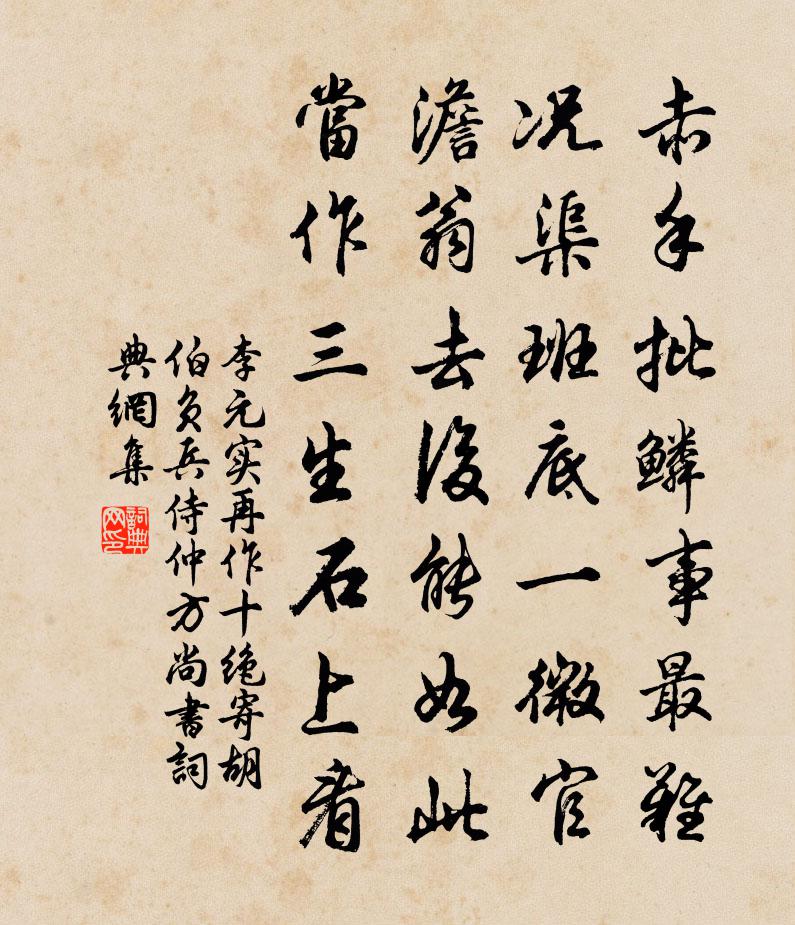 赤手批鳞事最難
况渠班底一微官
澹翁去後能如此
當作三生石上看
李元实再作十绝寄胡
伯负兵侍仲方尚書詞
典網集
詞典网印